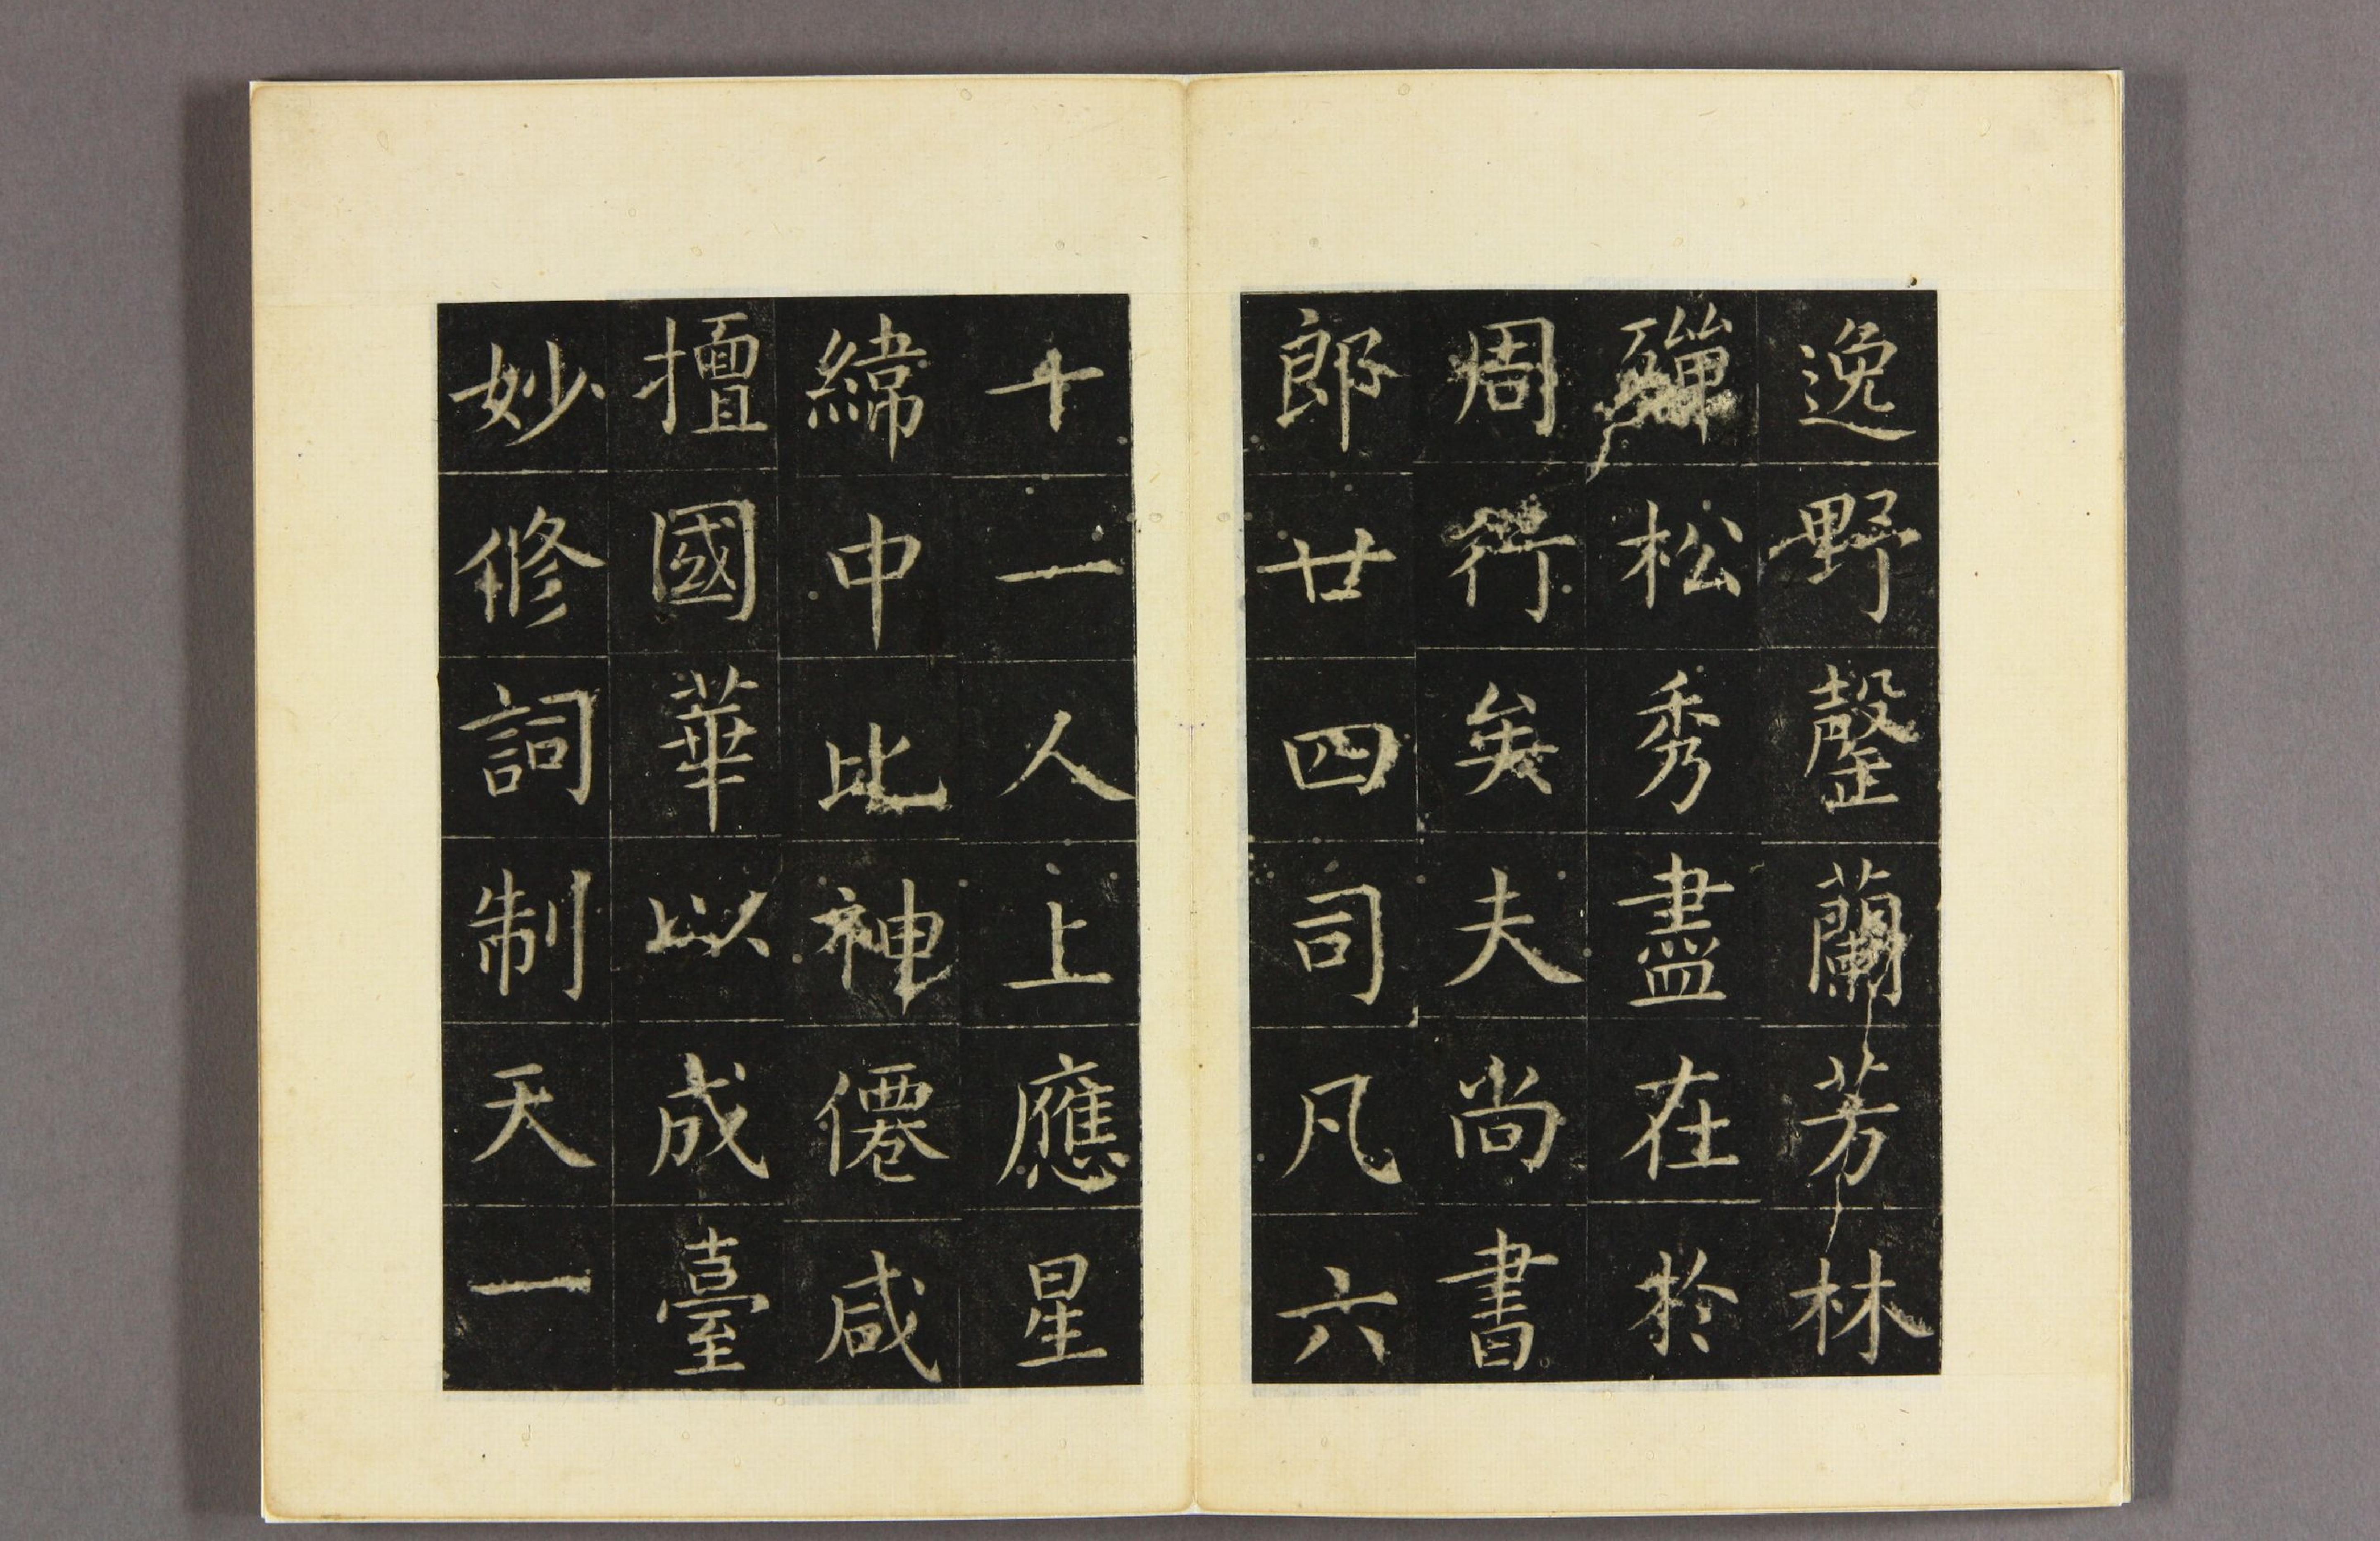 逸野罄蘭芳林
殫松秀盡在於
周行矣夫尚書
郎廿四司凡六
十一人上應星
緯中比神僊咸
擅國華以成臺
妙脩詞制天一